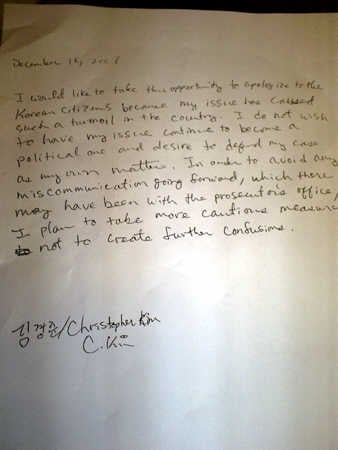 December 14, 200
I would like to take this opportunity to apologize to the
Korean citizens because my issue has caused
such a turmoil in the country. I do not wish
to have my issue continue to become a
political one and desire to defend my case
as my own matter. In order to avoid any
miscommunication going forward, which there
may have been with the prosecutor's office,
I plan to take more cautious measure
not to create further confusions.
김경준/Christopher Kim
C. Kim